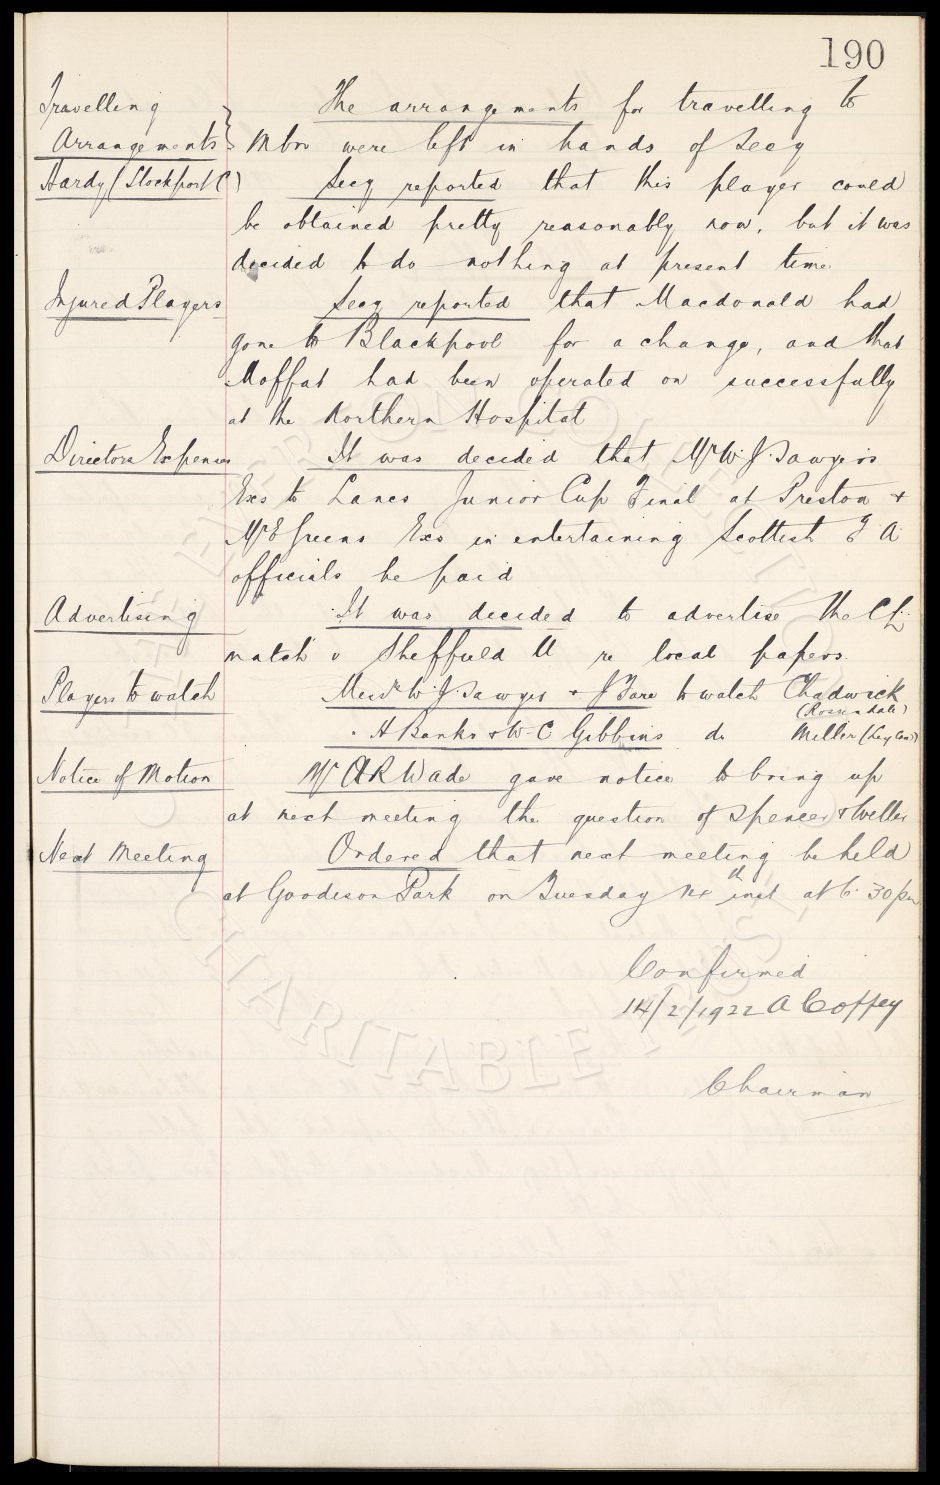 190
Travelling The arrangements for travelling to
Arrangements } Mbro were left in hands of Secy
Hardy (Stockport C) Secy reported that this player could
be obtained pretty reasonably now, but it was
decided to do nothing at present time
Injured Players Secy reported that Macdonald had
gone to Blackpool for a change, and that
Moffat had been operated on successfully
at the Northern Hospital
Directors Expenses It was decided that Mr W. J. Sawyers
Exs to Lancs Junior Cup Final at Preston +
Mr E Greens Exs in entertaining Scottish F A
officials be paid
Advertising It was decided to advertise the CL
match v Sheffield U re local papers.
Players to watch Messrs W. J. Sawyer + J Fare to watch Chadwick
(Rossendale)
" H Banks & W. C Gibbins do Miller (Leyland)
Notice of Motion Mr A R Wade gave notice to bring up
at next meeting the question of Spencer & Weller
Next Meeting Ordered that next meeting be held
at Goodison Park on Tuesday 14th inst at 6.30 pm
Confirmed
14/2/1922 A Coffey
Chairman
EVERTON COLLECTION
CHARITABLE TRUST